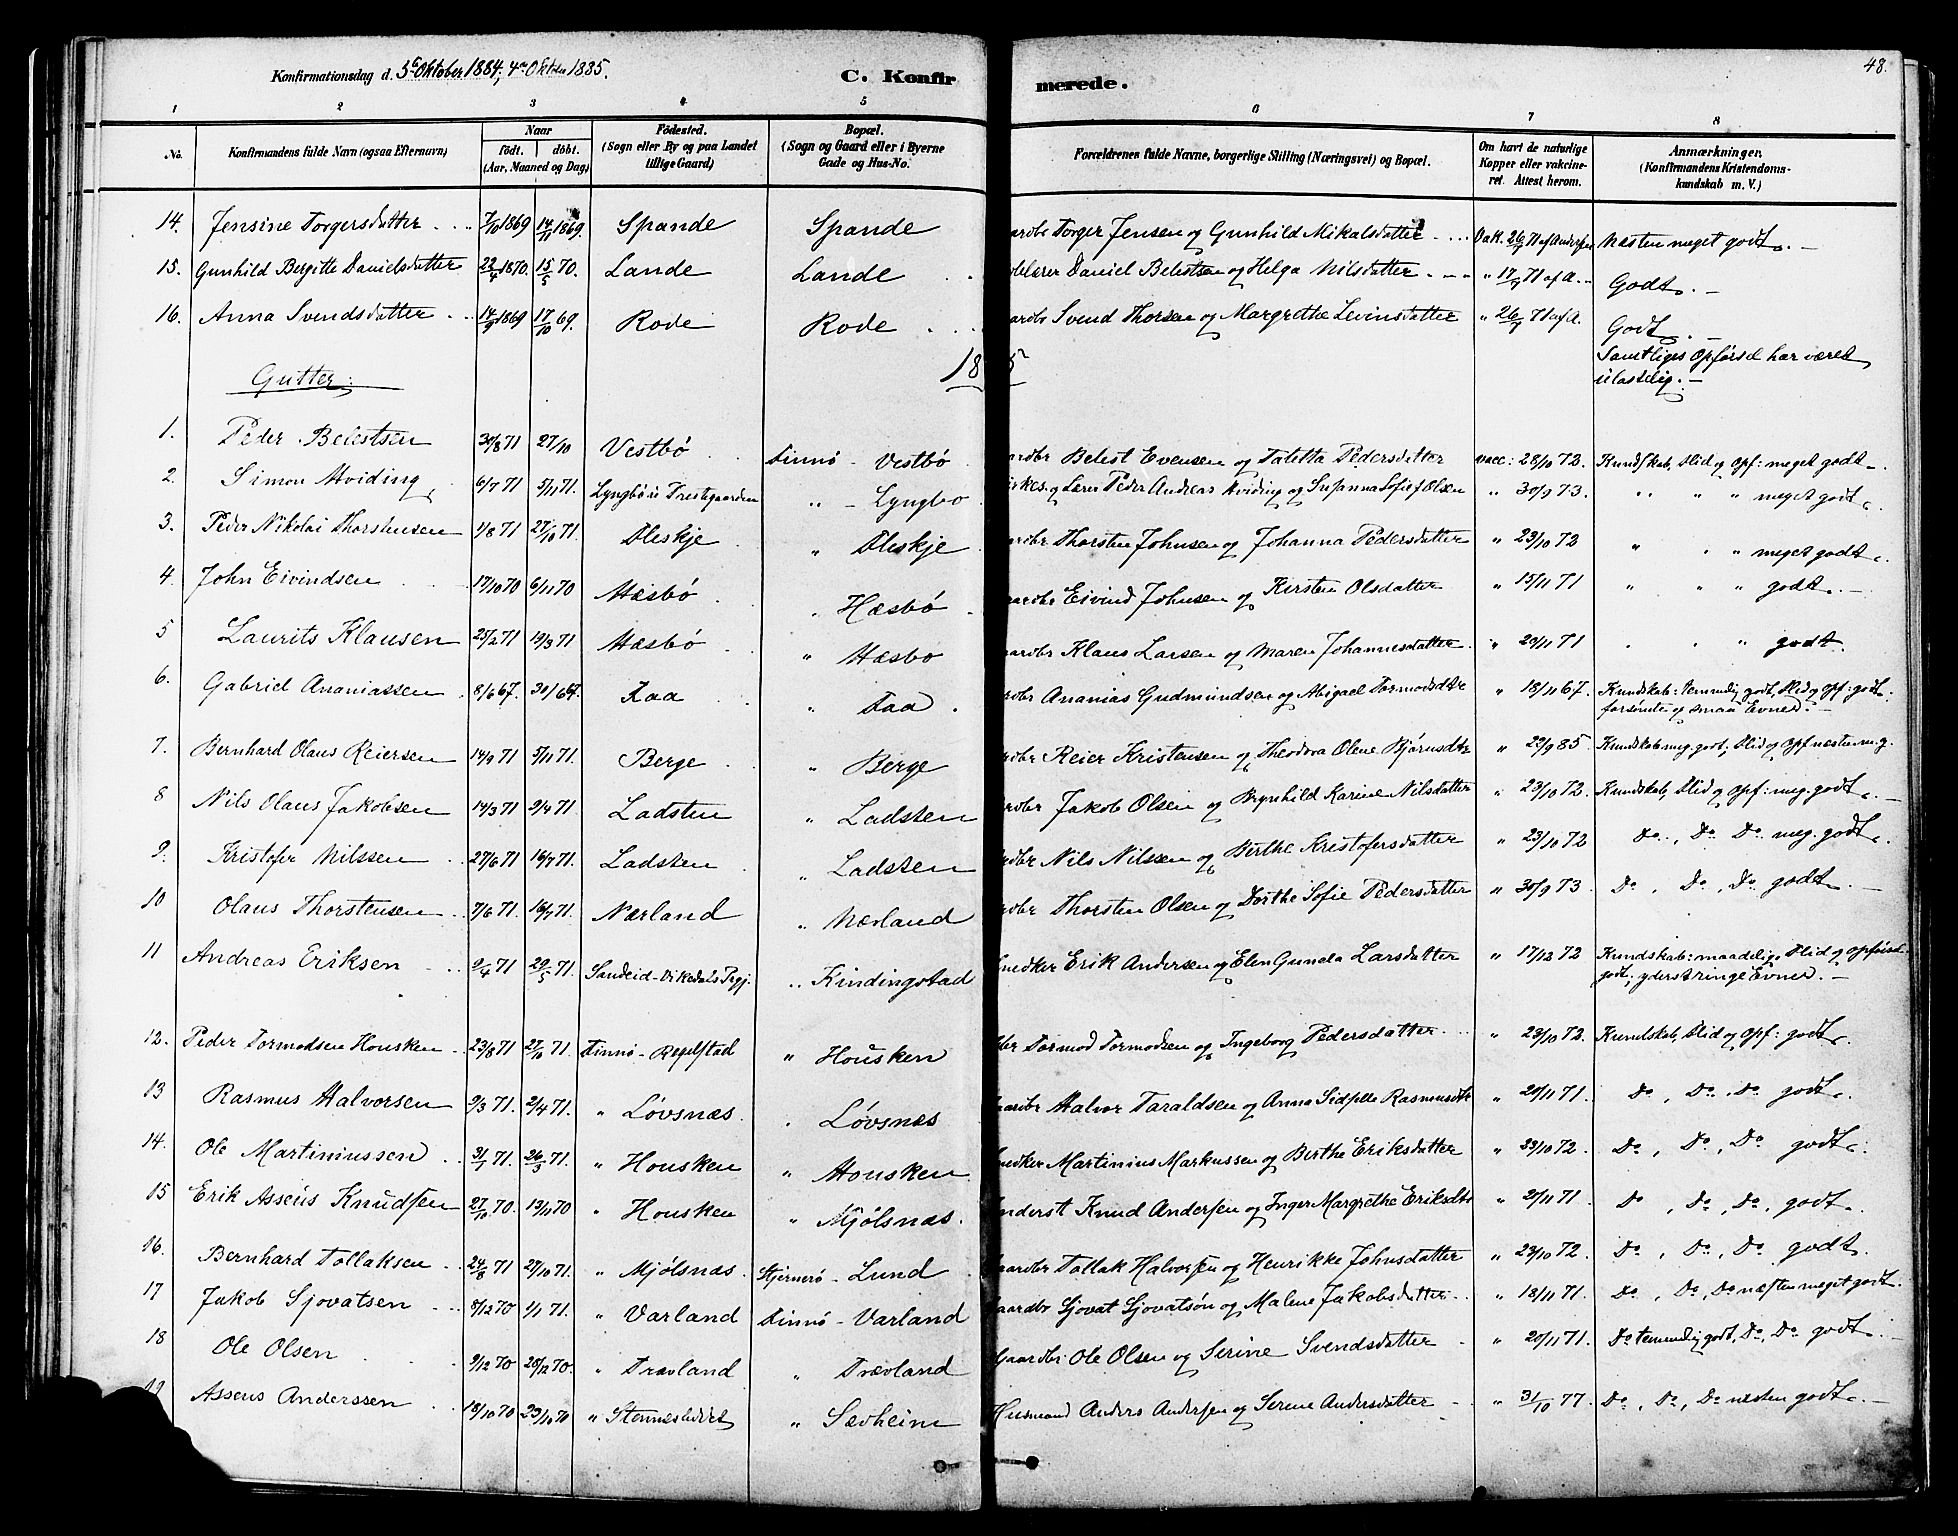 48.
Konfirmationsdag d. 5te Oktober 1884; 4de Oktober 1885.
C. Konfir merede.
1 2 3 4 5 6 7 8
No. Konfirmandens fulde Navn (ogsaa Efternavn) Naar født. døbt. (Aar, Maaned og Dag) Fødested. (Sogn eller By og paa Landet tillige Gaard) Bopæl. (Sogn og Gaard eller i Byerne Gade og Hus-No. Forældrenes fulde Navne, borgerlige Stilling (Næringsvei) og Bopæl. Om havt de naturlige Kopper eller vakcineret. Attest herom. Anmærkninger. (Konfirmandens Kristendomskundskab m. V.)
14. Jensine Torgersdatter 7/10 1869 14/11 1869. Spande Spande Torger Jensen og Gunhild Mikalsdatter Vak. 26/7 71 af Andersen Næsten meget godt. —
15. Gunhild Bergitte Danielsdatter 22/4 1870. 15/5 70. Lande Lande Daniel Belestsen og Helga Nilsdatter " 17/7 71 af A. Godt. —
16. Anna Svendsdatter 14/9 1869 17/10 69. Rode Rode Svend Thorsen og Margrethe Levinsdatter " 26/7 71 af A. Godt.
Samtliges Opførsel har været
ulastelig. —
Gutter: 18 5
1. Peder Belestsen 30/8 71 27/10 Vestbø Finnø - Vestbø Belest Evensen og Tatetta Pedersdatter vacc: 28/10 72. Kundskab, Flid og Opf: meget godt.
2. Simon Hviding 6/7 71 5/11 71. Lyngbø i Prestegaarden " - Lyngbø Lærer Peder Andreas Hviding og Susanna Sofie f Olsen " 30/9 73. " " " meget godt.
3. Peder Nikolai Thorstensen 1/8 71 27/10 71. Fleskje " Fleskje Thorsten Johnsen og Johanna Pedersdatter " 23/10 72 " " " meget godt.
4. John Eivindsen 17/10 70 6/11 70 Hæsbø " Hæsbø Eivind Johnsen og Kirsten Olsdatter " 15/11 71 " " " godt.
5 Laurits Klausen 25/2 71 19/3 71 Hæsbø " Hæsbø Klaus Larsen og Maren Johannesdatter. " 20/11 71 " " " godt.
6. Gabriel Ananiassen 8/6 67. 30/6 67. Faa " Faa Ananias Gudmundsen og Abigael Tormodsdtr " 18/11 67. Kundskab: temmelig godt, Flid og Opf: godt
forsømte og smaa Evner. —
7. Bernhard Olaus Reiersen 14/9 71 5/11 71. Berge " Berge Reier Kristensen og Theodora Olene Bjørnsdtr " 22/9 85. Kundskab meg. godt; Flid og Opf næsten m. g.
8 Nils Olaus Jakobsen 14/3 71 9/4 71. Ladsten " Ladsten Jakob Olsen og Brynhild Karine Nilsdatter " 23/10 72. Kundskab, Flid og Opf: meg. godt.
9. Kristofer Nilssen 27/6 71 16/7 71. Ladsten " Ladsten Nils Nilssen og Berthe Kristofersdatter " 23/10 72 Do, Do, Do meg. godt.
10 Olaus Thorstensen 7/6 71. 16/7 71. Nærland " Nærland Thorsten Olsen og Dorthe Sofie Pedersdatter " 30/9 73 Do, Do, Do godt.
11 Andreas Eriksen 9/4 71 29/5 71. Sandeid - Vikedals Prgj. " Kindingstad Snedker Erik Andersen og Elen Gunela Larsdatter " 17/12 72 Kundskab: maadelig, Flid og Opførsel
godt; yderst ringe Evner. —
12. Peder Tormodsen Housken 23/8 71 27/10 71. Finnø - Reelstad " Housken Tormod Tormodsen og Ingeborg Pedersdatter " 23/10 72. Kundskab, Flid og Opf: godt.
13 Rasmus Halvorsen 9/3 71. 2/4 71. " Løvsnæs. " Løvsnæs Halvor Taraldsen og Anna Sidselle Rasmusdtr " 20/11 71. Do, Do, Do godt.
14. Ole Martiniussen 31/1 71. 26/3 71. " Housken " Housken Snedker Martinius Markussen og Berthe Eriksdatter " 23/10 72. Do, Do, Do godt.
15 Erik Asseus Knudsen 27/10 70. 13/11 70 " Housken " Mjølsnæs. Inderst Knud Andersen og Inger Margrethe Eriksdtr " 20/11 71 Do, Do, Do, godt.
16. Bernhard Tollaksen 24/8 71 27/10 71. " Mjølsnæs. Stjernerø - Lund Gaardbr Tollak Halvorsen og Henrikke Johnsdatter " 23/10 72. Do, Do, Do godt.
17 Jakob Sjovatsen 8/12 70 1/1 71. " Varland Finnø - Varland Gaardbr Sjovat Sjovatsøn og Malene Jakobsdatter " 18/11 71. Do, Do, Do næsten meget godt.
18 Ole Olsen 9/12 70 28/12 70. " Trævland " Trævland Gaardbr. Ole Olsen og Serine Svendsdatter " 20/11 71. Do temmelig godt, Do, Do godt.
19 Asseus Anderssen 18/10 70 23/10 70 " " Sævheim Husmand Anders Andersen og Serene Andersdatter " 31/10 77. Do, Do, Do næsten godt.